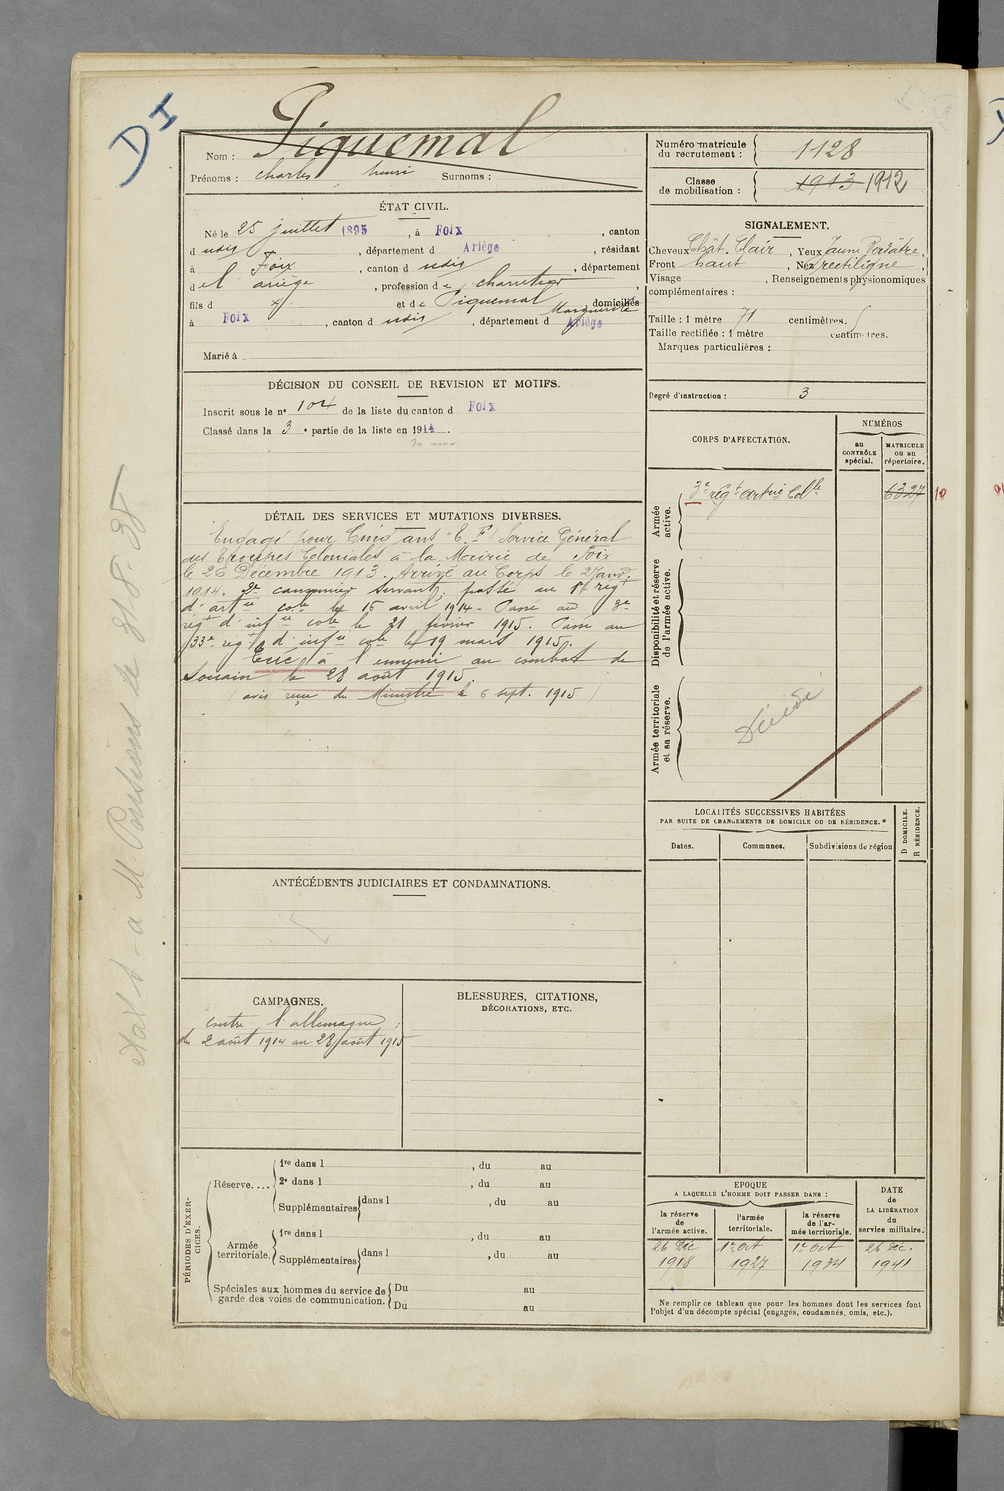 DI
Nom : Piquemal
Prénoms : Charles, henri Surnoms :
Numéro matricule du recrutement : 1128
Classe de mobilisation : 1913 1912
ÉTAT CIVIL.
Né le 25 juillet 1895, à Foix, canton
d udis, département d Ariège, résidant
à Foix, canton d udis, département
d el ariège, profession de charretier
fils d x et de Piquemal Marguerite, domiciliés
à Foix, canton d udis, département d Ariège
Marié à
SIGNALEMENT.
Cheveux Chât. Clair, Yeux Jaun. Verdâtre,
Front haut, Nez rectiligne,
Visage , Renseignements physionomiques
complémentaires :
Taille : 1 mètre 71 centimètres.
Taille rectifiée : 1 mètre centimètres.
Marques particulières :
Degré d'instruction : 3
DÉCISION DU CONSEIL DE REVISION ET MOTIFS.
Inscrit sous le n° 104 de la liste du canton d Foix
Classé dans la 3e partie de la liste en 1914.
CORPS D'AFFECTATION.
NUMÉROS
au CONTRÔLE spécial.
MATRICULE ou au répertoire.
Armée active.
3e régt artrie Colle
6327 10
Disponibilité et réserve de l'armée active.
Armée territoriale et sa réserve.
Décédé
DÉTAIL DES SERVICES ET MUTATIONS DIVERSES.
Engagé pour Cinq ans Service Général
des Troupes Coloniales à la Mairie de Foix
le 26 Décembre 1913. Arrivé au Corps le 2 Janv.
1914. 2e canonnier servant, passé au régt
d'artie cole le 15 avril 1914 - Passé au 3e
régt d'infie cole le 21 février 1915. Passé au
33e régt d'infie cole le 19 mars 1915.
Tué à l'ennemi au combat de
Souain le 28 août 1915.
(avis reçu du Ministre le 6 sept. 1915)
LOCALITÉS SUCCESSIVES HABITÉES
PAR SUITE DE CHANGEMENTS DE DOMICILE OU DE RÉSIDENCE.
Dates.
Communes.
Subdivisions de région
D DOMICILE.
R RÉSIDENCE.
ANTÉCÉDENTS JUDICIAIRES ET CONDAMNATIONS.
CAMPAGNES.
Contre l'allemagne :
du 2 août 1914 au 28 août 1915
BLESSURES, CITATIONS,
DÉCORATIONS, ETC.
PÉRIODES D'EXERCICES.
Réserve....
1re dans l , du au
2e dans l , du au
Supplémentaires dans l , du au
Armée territoriale.
1re dans l , du au
Supplémentaires dans l , du au
Spéciales aux hommes du service de
garde des voies de communication.
Du au
Du au
EPOQUE
A LAQUELLE L'HOMME DOIT PASSER DANS :
la réserve de l'armée active.
l'armée territoriale.
la réserve de l'armée territoriale.
DATE de LA LIBÉRATION du service militaire.
26 Déc 1918
1er Oct 1927
1er Oct 1934
26 Déc. 1941
Ne remplir ce tableau que pour les hommes dont les services font
l'objet d'un décompte spécial (engagés, condamnés, omis, etc.).
à M Pensions le